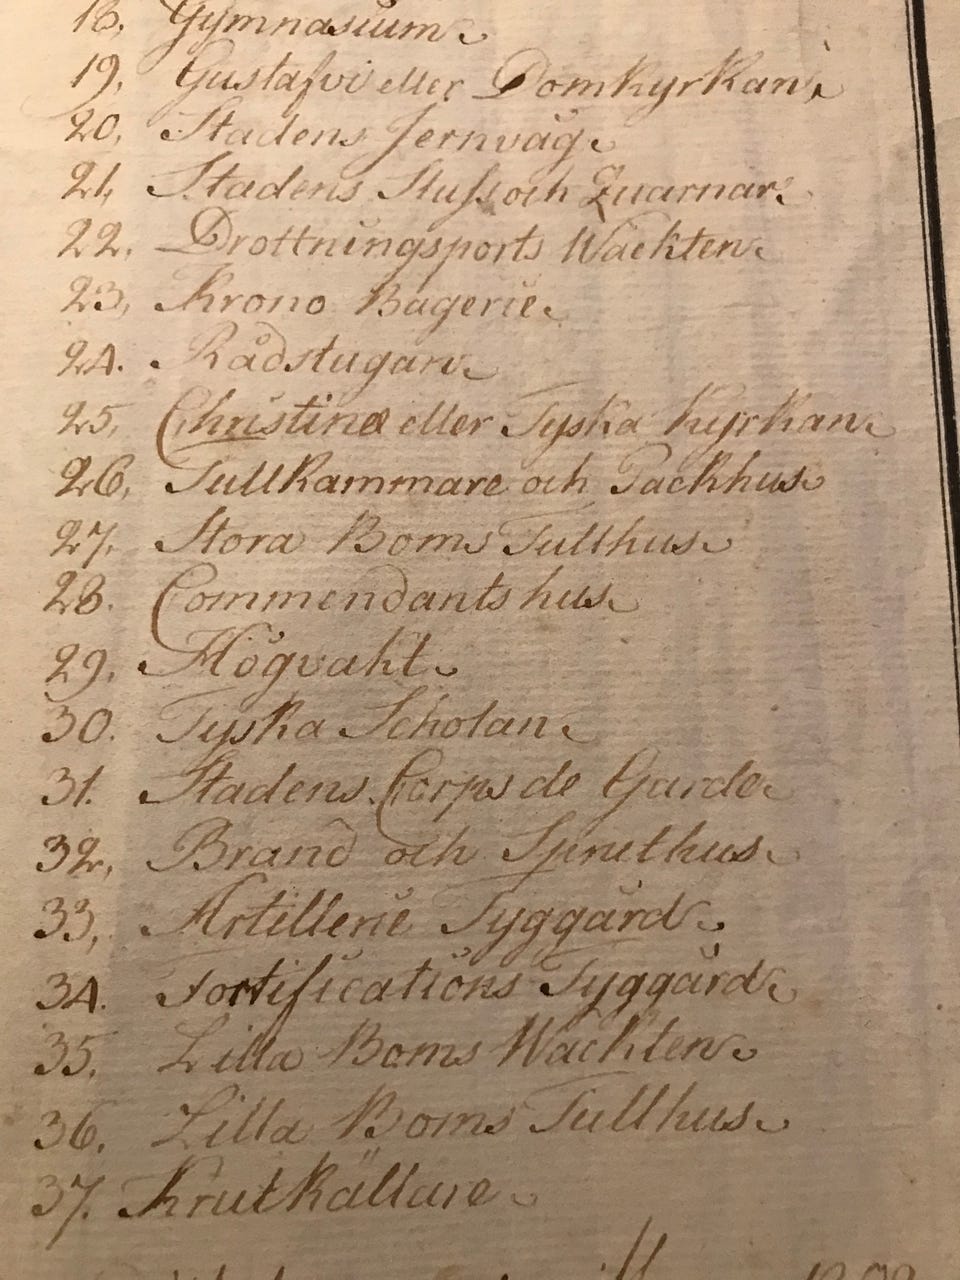 18, Gymnasium
19, Gustafvi eller Domkyrkan,
20, Stadens Jernvåg
21, Stadens Sluss och Quarnar
22, Drottningsports Wackten
23, Krono Bagerie
24. Rådstugan
25, Christinæ eller Tyska Kyrkan
26, Tullkammare och Packhus
27. Stora Boms Tullhus
28. Commendants hus
29, Högvakt
30. Tyska Scholan
31. Stadens Corps de Garde
32, Brand och Spruthus
33, Artillerie Tyggård
34. Fortifications Tyggård
35. Lilla Boms Wackten
36. Lilla Boms Tullhus
37. Krutkällare